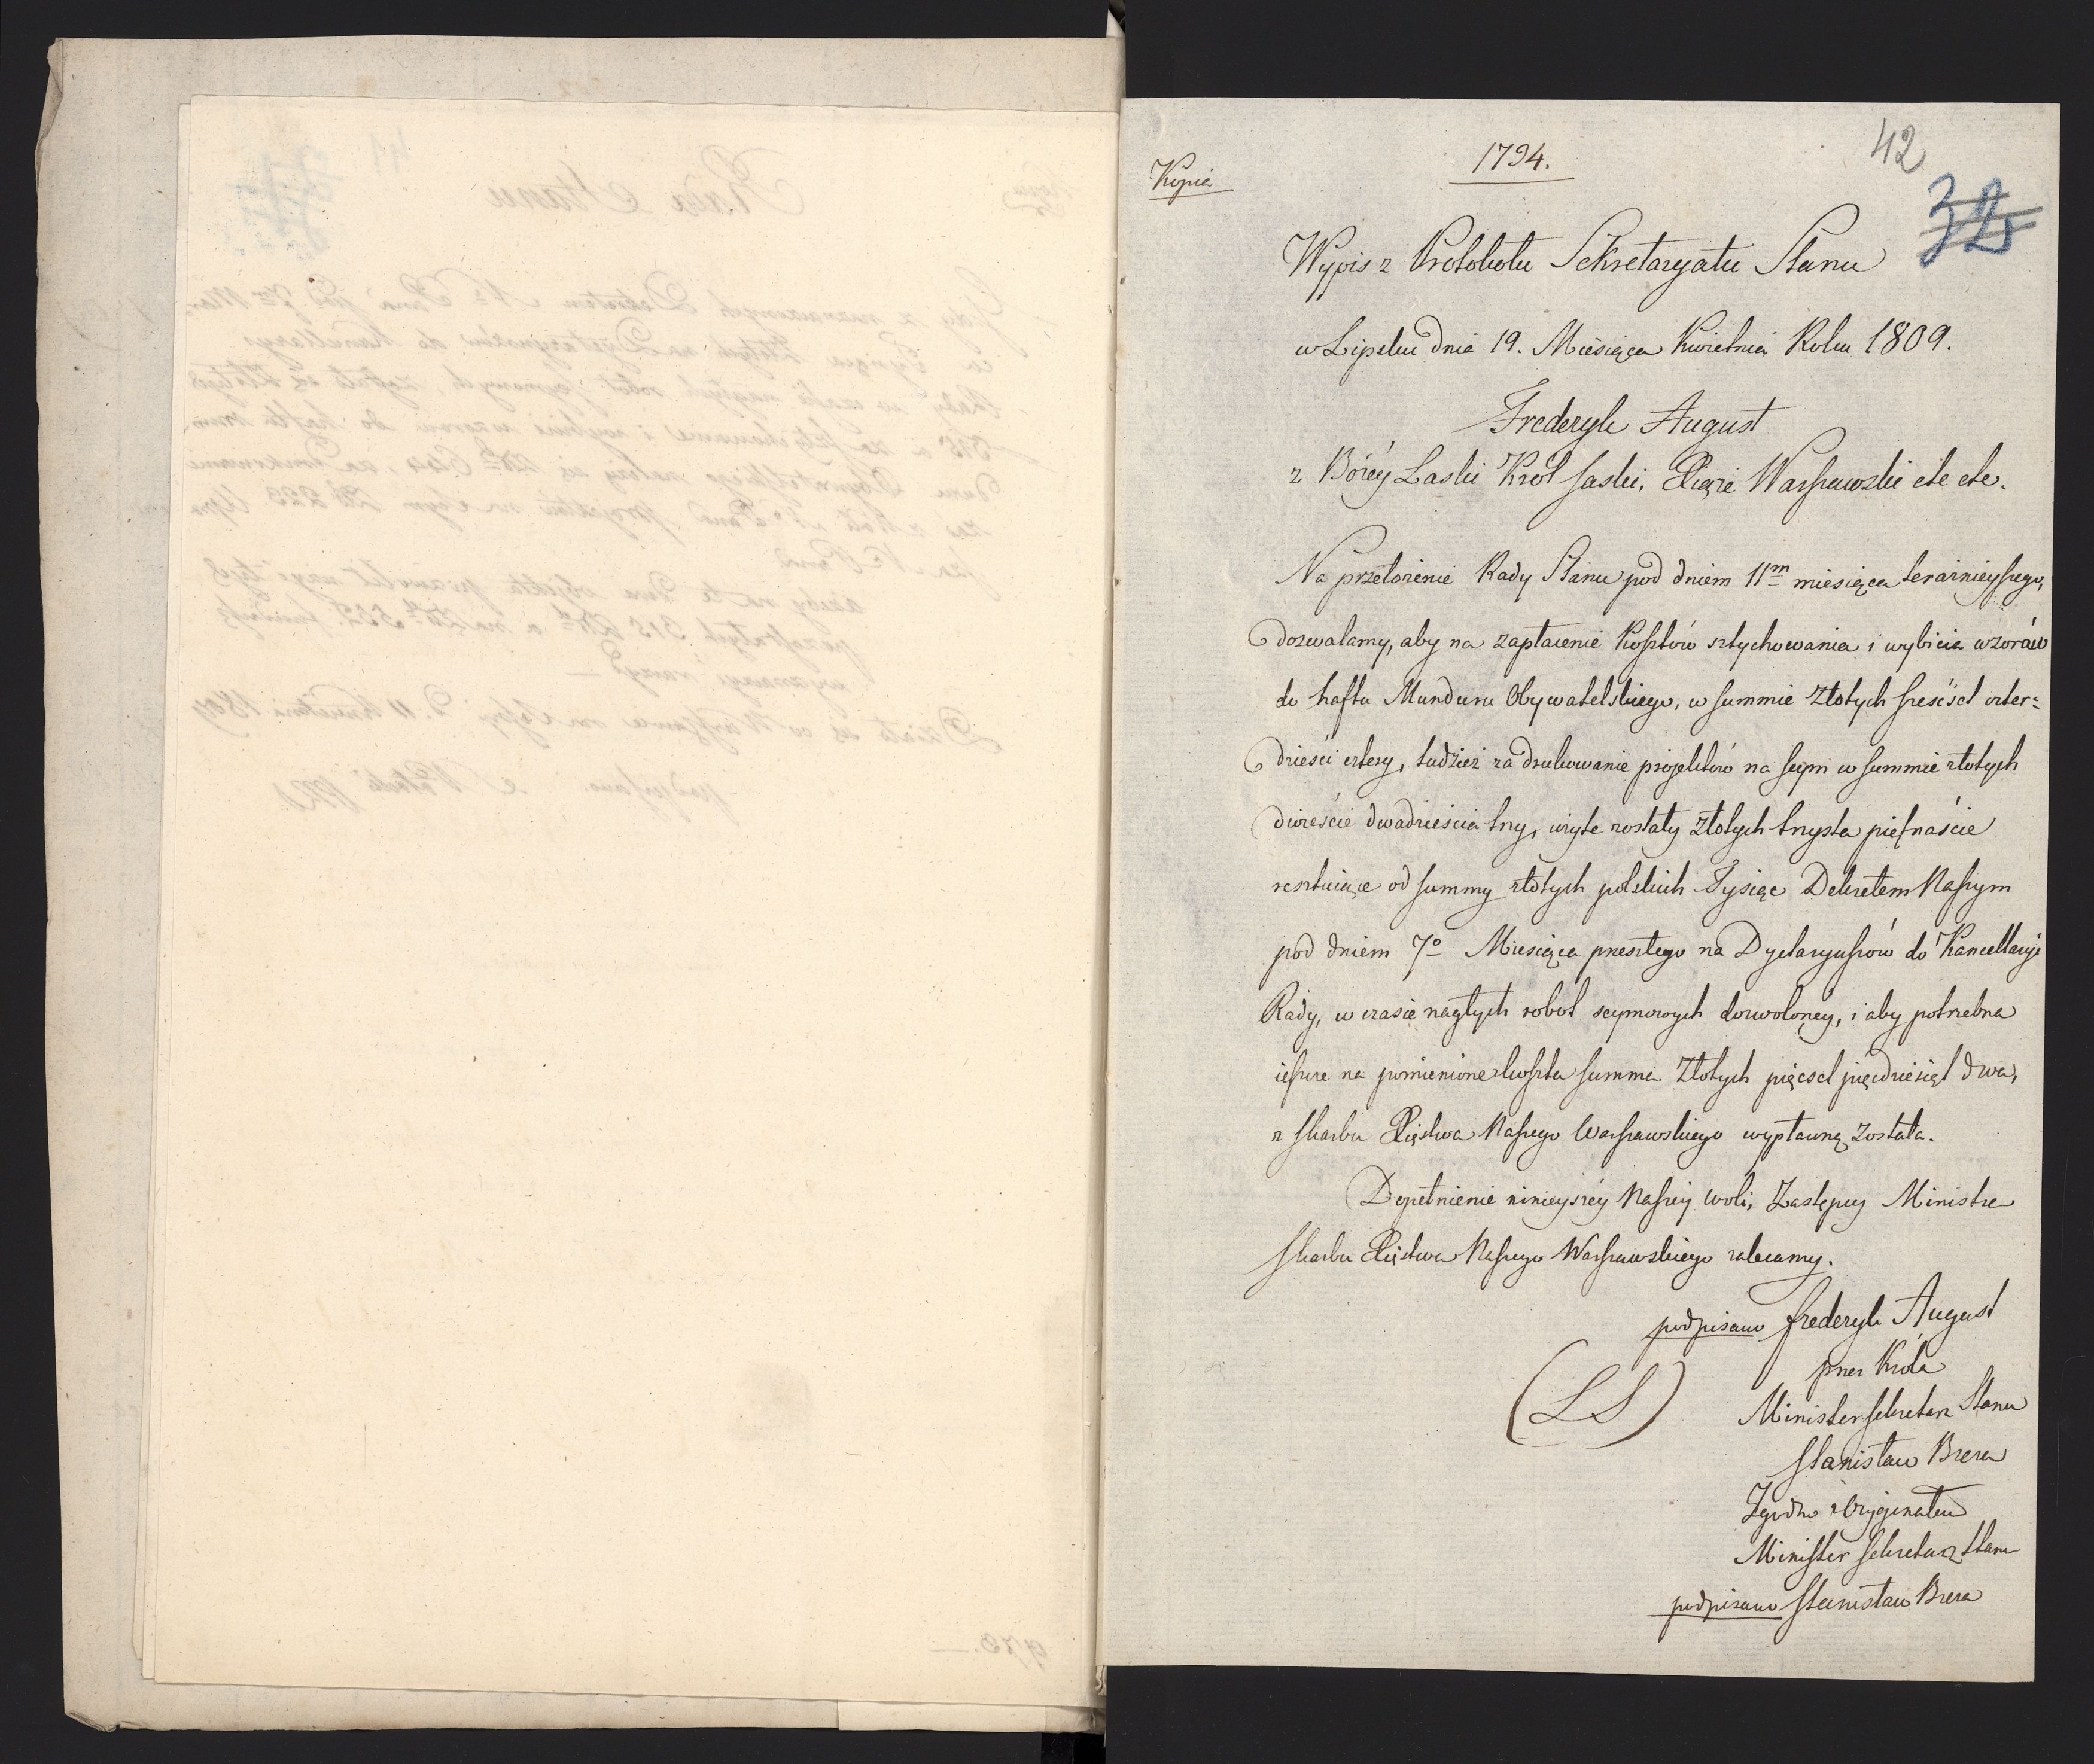 42
1794.
Kopia
32
Wypis z Protokołu Sekretaryatu Stanu
w Lipsku dnia 19. Miesiąca Kwietnia Roku 1809.
Frederyk August
z Bożéy Łaski Krol Saski, Xiąże Warszawski etc etc.
Na przełożenie Rady Stanu pod dniem 11m miesiąca teraznieyszego,
dozwalamy, aby na zapłacenie kosztów sztychowania i wybicia wzorów
do haftu Munduru Obywatelskiego, w summie złotych sześćset czter=
dzieści cztery, tudzież za drukowanie projektów na seym w summie złotych
dwieście dwadzieścia trzy, wzięte zostały złotych trzysta piętnaście
resztuiące od summy złotych polskich Tysiąc Dekretem Naszym
pod dniem 7o Miesiąca przeszłego na Dyetaryuszów do Kancellaryi
Rady, w czasie nagłych robot seymowych dozwoloney, i aby potrzebna
ieszcze na pomienione koszta summa Złotych pięćset pięćdziesiąt dwa,
z skarbu Xięstwa Naszego Warszawskiego wypłacną została.
Dopełnienie ninieyszéy Naszéy woli, Zastępcy Ministra
skarbu Xięstwa Naszego Warszawskiego zalecamy.
podpisano Frederyk August
przez Króla
(LS) Minister Sekretarz Stanu
Stanisław Breza
Zgodno z Oryginałem
Minister Sekretarz Stanu
podpisano Stanisław Breza